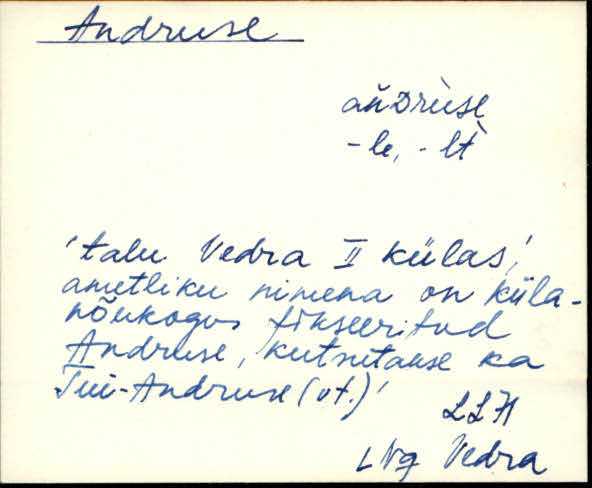 Andruse
añDrùse
-le, -lt
'talu Vedra II külas,'
ametliku nimena on küla-
nõukogus fikseeritud
Andruse, kutsutakse ka
Tui-Andruse (vt.)'
LLH
LNg Vedra